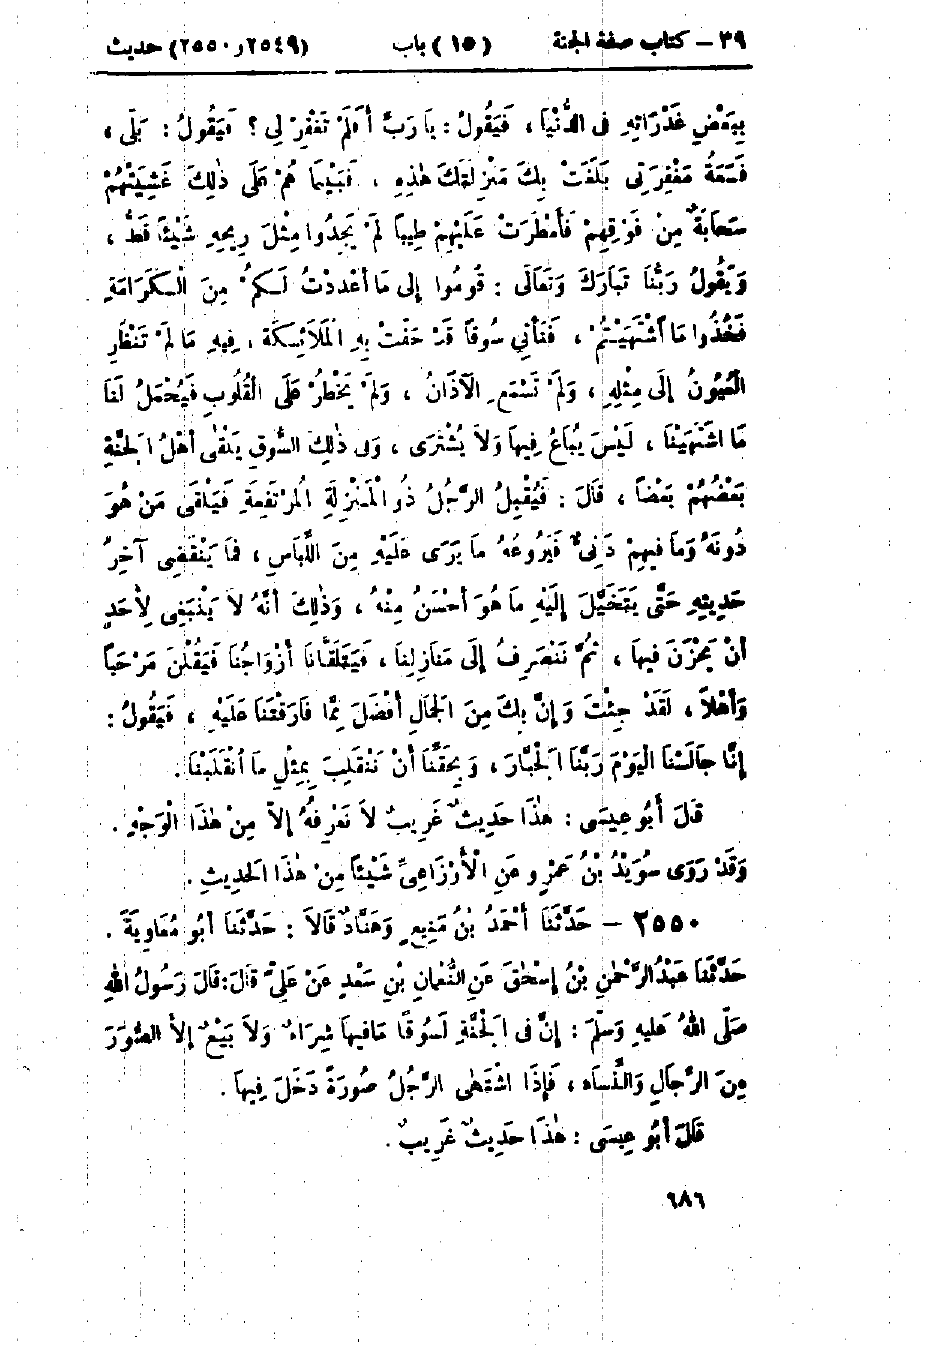 ٣٩ – كتاب صفة الجنة (١٥) باب (٢٥٤٩ و ٢٥٥٠) حديث
بِبَعْضِ غَدَرَاتِهِ فِى الدُّنْيَا ، فَيَقُولُ : يَا رَبِّ أَفَلَمْ تَغْفِرْ لِى ؟ فَيَقُولُ : بَلَى ،
فَسَعَةُ مَغْفِرَتِى بَلَغَتْ بِكَ مَنْزِلَتَكَ هٰذِهِ ، فَبَيْنَمَا هُمْ عَلَى ذٰلِكَ غَشِيَتْهُمْ
سَحَابَةٌ مِنْ فَوْقِهِمْ فَأَمْطَرَتْ عَلَيْهِمْ طِيبًا لَمْ يَجِدُوا مِثْلَ رِيحِهِ شَيْئًا قَطُّ ،
وَيَقُولُ رَبُّنَا تَبَارَكَ وَتَعَالَى : قُومُوا إِلَى مَا أَعْدَدْتُ لَكُمْ مِنَ الْكَرَامَةِ
فَخُذُوا مَا اشْتَهَيْتُمْ ، فَنَأْتِى سُوقًا قَدْ حَفَّتْ بِهِ الْمَلَائِكَةُ ، فِيهِ مَا لَمْ تَنْظُرِ
الْعُيُونُ إِلَى مِثْلِهِ ، وَلَمْ تَسْمَعِ الْآذَانُ ، وَلَمْ يَخْطُرْ عَلَى الْقُلُوبِ فَيُحْمَلُ لَنَا
مَا اشْتَهَيْنَا ، لَيْسَ يُبَاعُ فِيهَا وَلاَ يُشْتَرَى ، وَفِى ذٰلِكَ السُّوقِ يَلْقَى أَهْلُ الْجَنَّةِ
بَعْضُهُمْ بَعْضًا ، قَالَ : فَيُقْبِلُ الرَّجُلُ ذُو الْمَنْزِلَةِ الْمُرْتَفِعَةِ فَيَلْقَى مَنْ هُوَ
دُونَهُ وَمَا فِيهِمْ دَنِىٌّ فَيَرُوعُهُ مَا يَرَى عَلَيْهِ مِنَ اللِّبَاسِ ، فَمَا يَنْقَضِى آخِرُ
حَدِيثِهِ حَتَّى يَتَخَيَّلَ إِلَيْهِ مَا هُوَ أَحْسَنُ مِنْهُ ، وَذٰلِكَ أَنَّهُ لاَ يَنْبَغِى لِأَحَدٍ
أَنْ يَحْزَنَ فِيهَا ، ثُمَّ نَنْصَرِفُ إِلَى مَنَازِلِنَا ، فَيَتَلَقَّانَا أَزْوَاجُنَا فَيَقُلْنَ مَرْحَبًا
وَأَهْلاً ، لَقَدْ جِئْتَ وَإِنَّ بِكَ مِنَ الْجَمَالِ أَفْضَلَ مِمَّا فَارَقْتَنَا عَلَيْهِ ، فَيَقُولُ :
إِنَّا جَالَسْنَا الْيَوْمَ رَبَّنَا الْجَبَّارَ ، وَيَحِقُّنَا أَنْ نَنْقَلِبَ بِمِثْلِ مَا انْقَلَبْنَا .
قَالَ أَبُو عِيسَى : هٰذَا حَدِيثٌ غَرِيبٌ لاَ نَعْرِفُهُ إِلاَّ مِنْ هٰذَا الْوَجْهِ .
وَقَدْ رَوَى سُوَيْدُ بْنُ عَمْرٍو عَنِ الْأَوْزَاعِىِّ شَيْئًا مِنْ هٰذَا الْحَدِيثِ .
٢٥٥٠ – حَدَّثَنَا أَحْمَدُ بْنُ مَنِيعٍ وَهَنَّادٌ قَالاَ : حَدَّثَنَا أَبُو مُعَاوِيَةَ .
حَدَّثَنَا عَبْدُ الرَّحْمٰنِ بْنُ إِسْحٰقَ عَنِ النُّعْمَانِ بْنِ سَعْدٍ عَنْ عَلِىٍّ قَالَ: قَالَ رَسُولُ اللهِ
صَلَّى اللهُ عَلَيهِ وَسَلَّمَ : إِنَّ فِى الْجَنَّةِ لَسُوقًا مَا فِيهَا شِرَاءٌ وَلاَ بَيْعٌ إِلاَّ الصُّوَرَ
مِنَ الرِّجَالِ وَالنِّسَاءِ ، فَإِذَا اشْتَهَى الرَّجُلُ صُورَةً دَخَلَ فِيهَا .
قَالَ أَبُو عِيسَى : هٰذَا حَدِيثٌ غَرِيبٌ .
٦٨٦